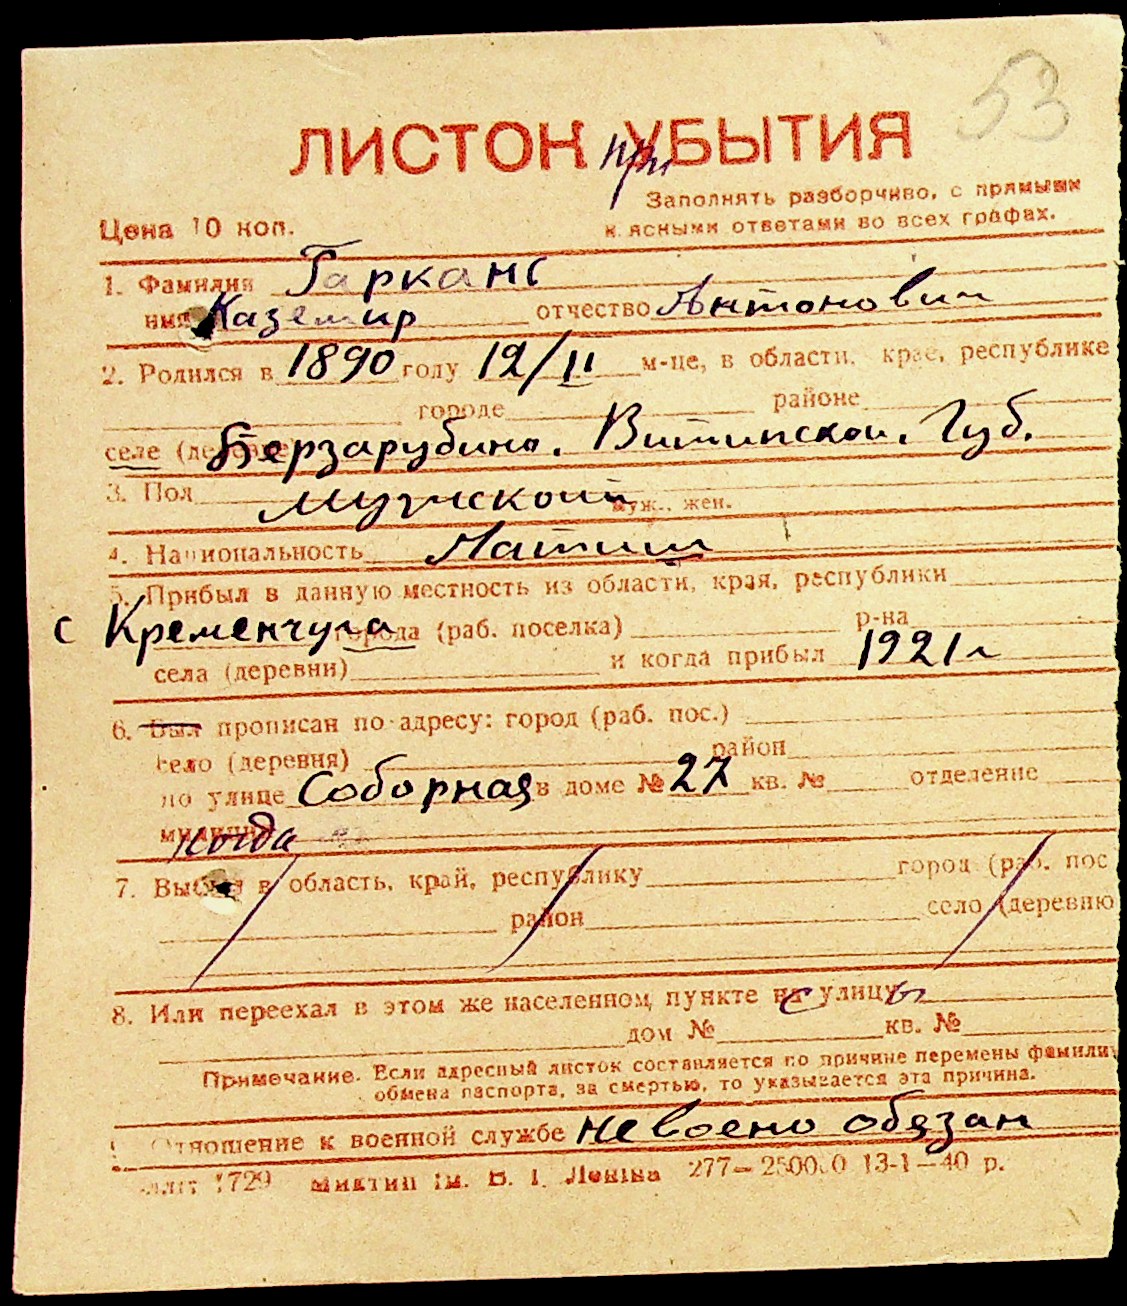 53
ЛИСТОК при УБЫТИЯ
Заполнять разборчиво, с прямыми
и ясными ответами во всех графах.
Цена 10 коп.
1. Фамилия Гарканс
имя Каземир отчество Антонович
2. Родился в 1890 году 12/II м-це, в области, крае, республике
городе районе
селе (деревне) Берзарубино. Витипской. Губ.
3. Пол мужской муж., жен.
4. Национальность Латиш
5. Прибыл в данную местность из области, края, республики
с Кременчуга города (раб. поселка) р-на
села (деревни) и когда прибыл 1921 г
6. Был прописан по адресу: город (раб. пос.)
село (деревня) район
по улице Соборная в доме № 27 кв. № отделение
милиции когда
7. Выбыл в область, край, республику город (раб. пос
район село (деревню
8. Или переехал в этом же населенном пункте на с улицу ы
дом № кв. №
Примечание. Если адресный листок составляется по причине перемены фамилии
обмена паспорта, за смертью, то указывается эта причина.
Отношение к военной службе не военно обязан
1729 Миктип ім. В. І. Леніна 277—250000 13-1—40 р.